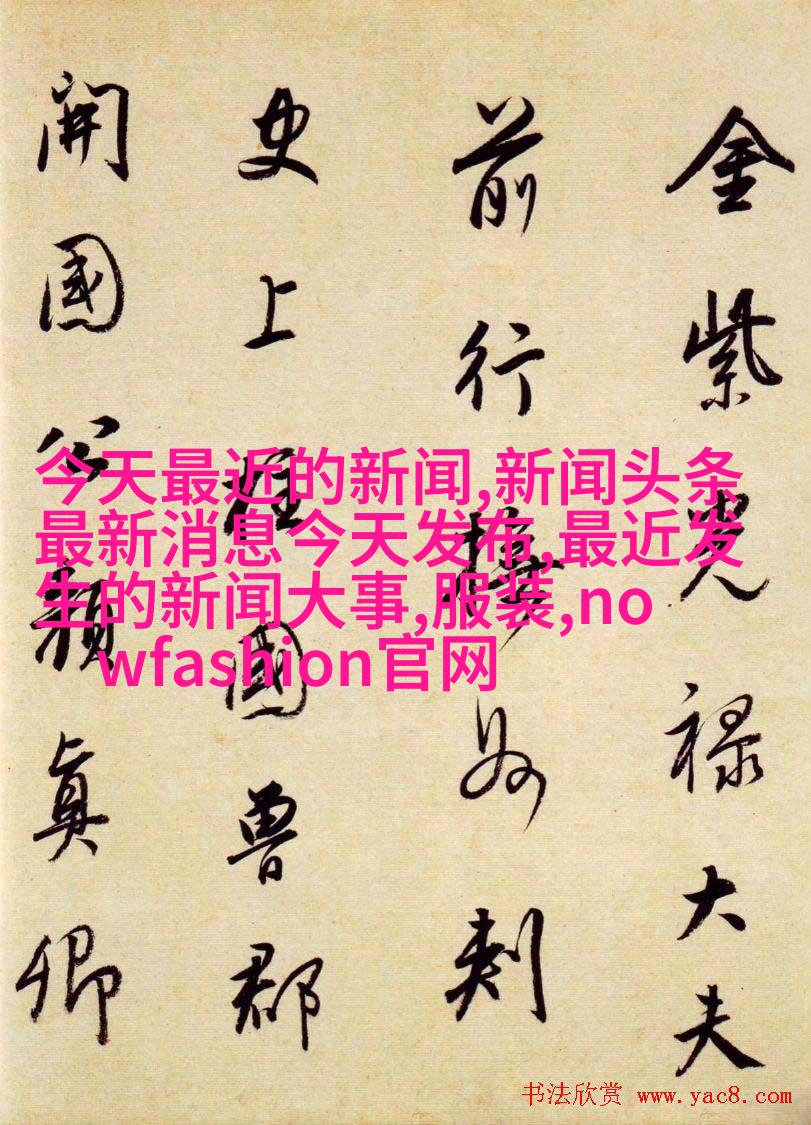 金紫光禄大夫
前行撫州刺
史上柱國魯郡
開國公顏真卿
今天最近的新闻,新闻头条
最新消息今天发布,最近发
生的新闻大事,服装,no
wfashion官网
书法欣赏 www.yac8.com